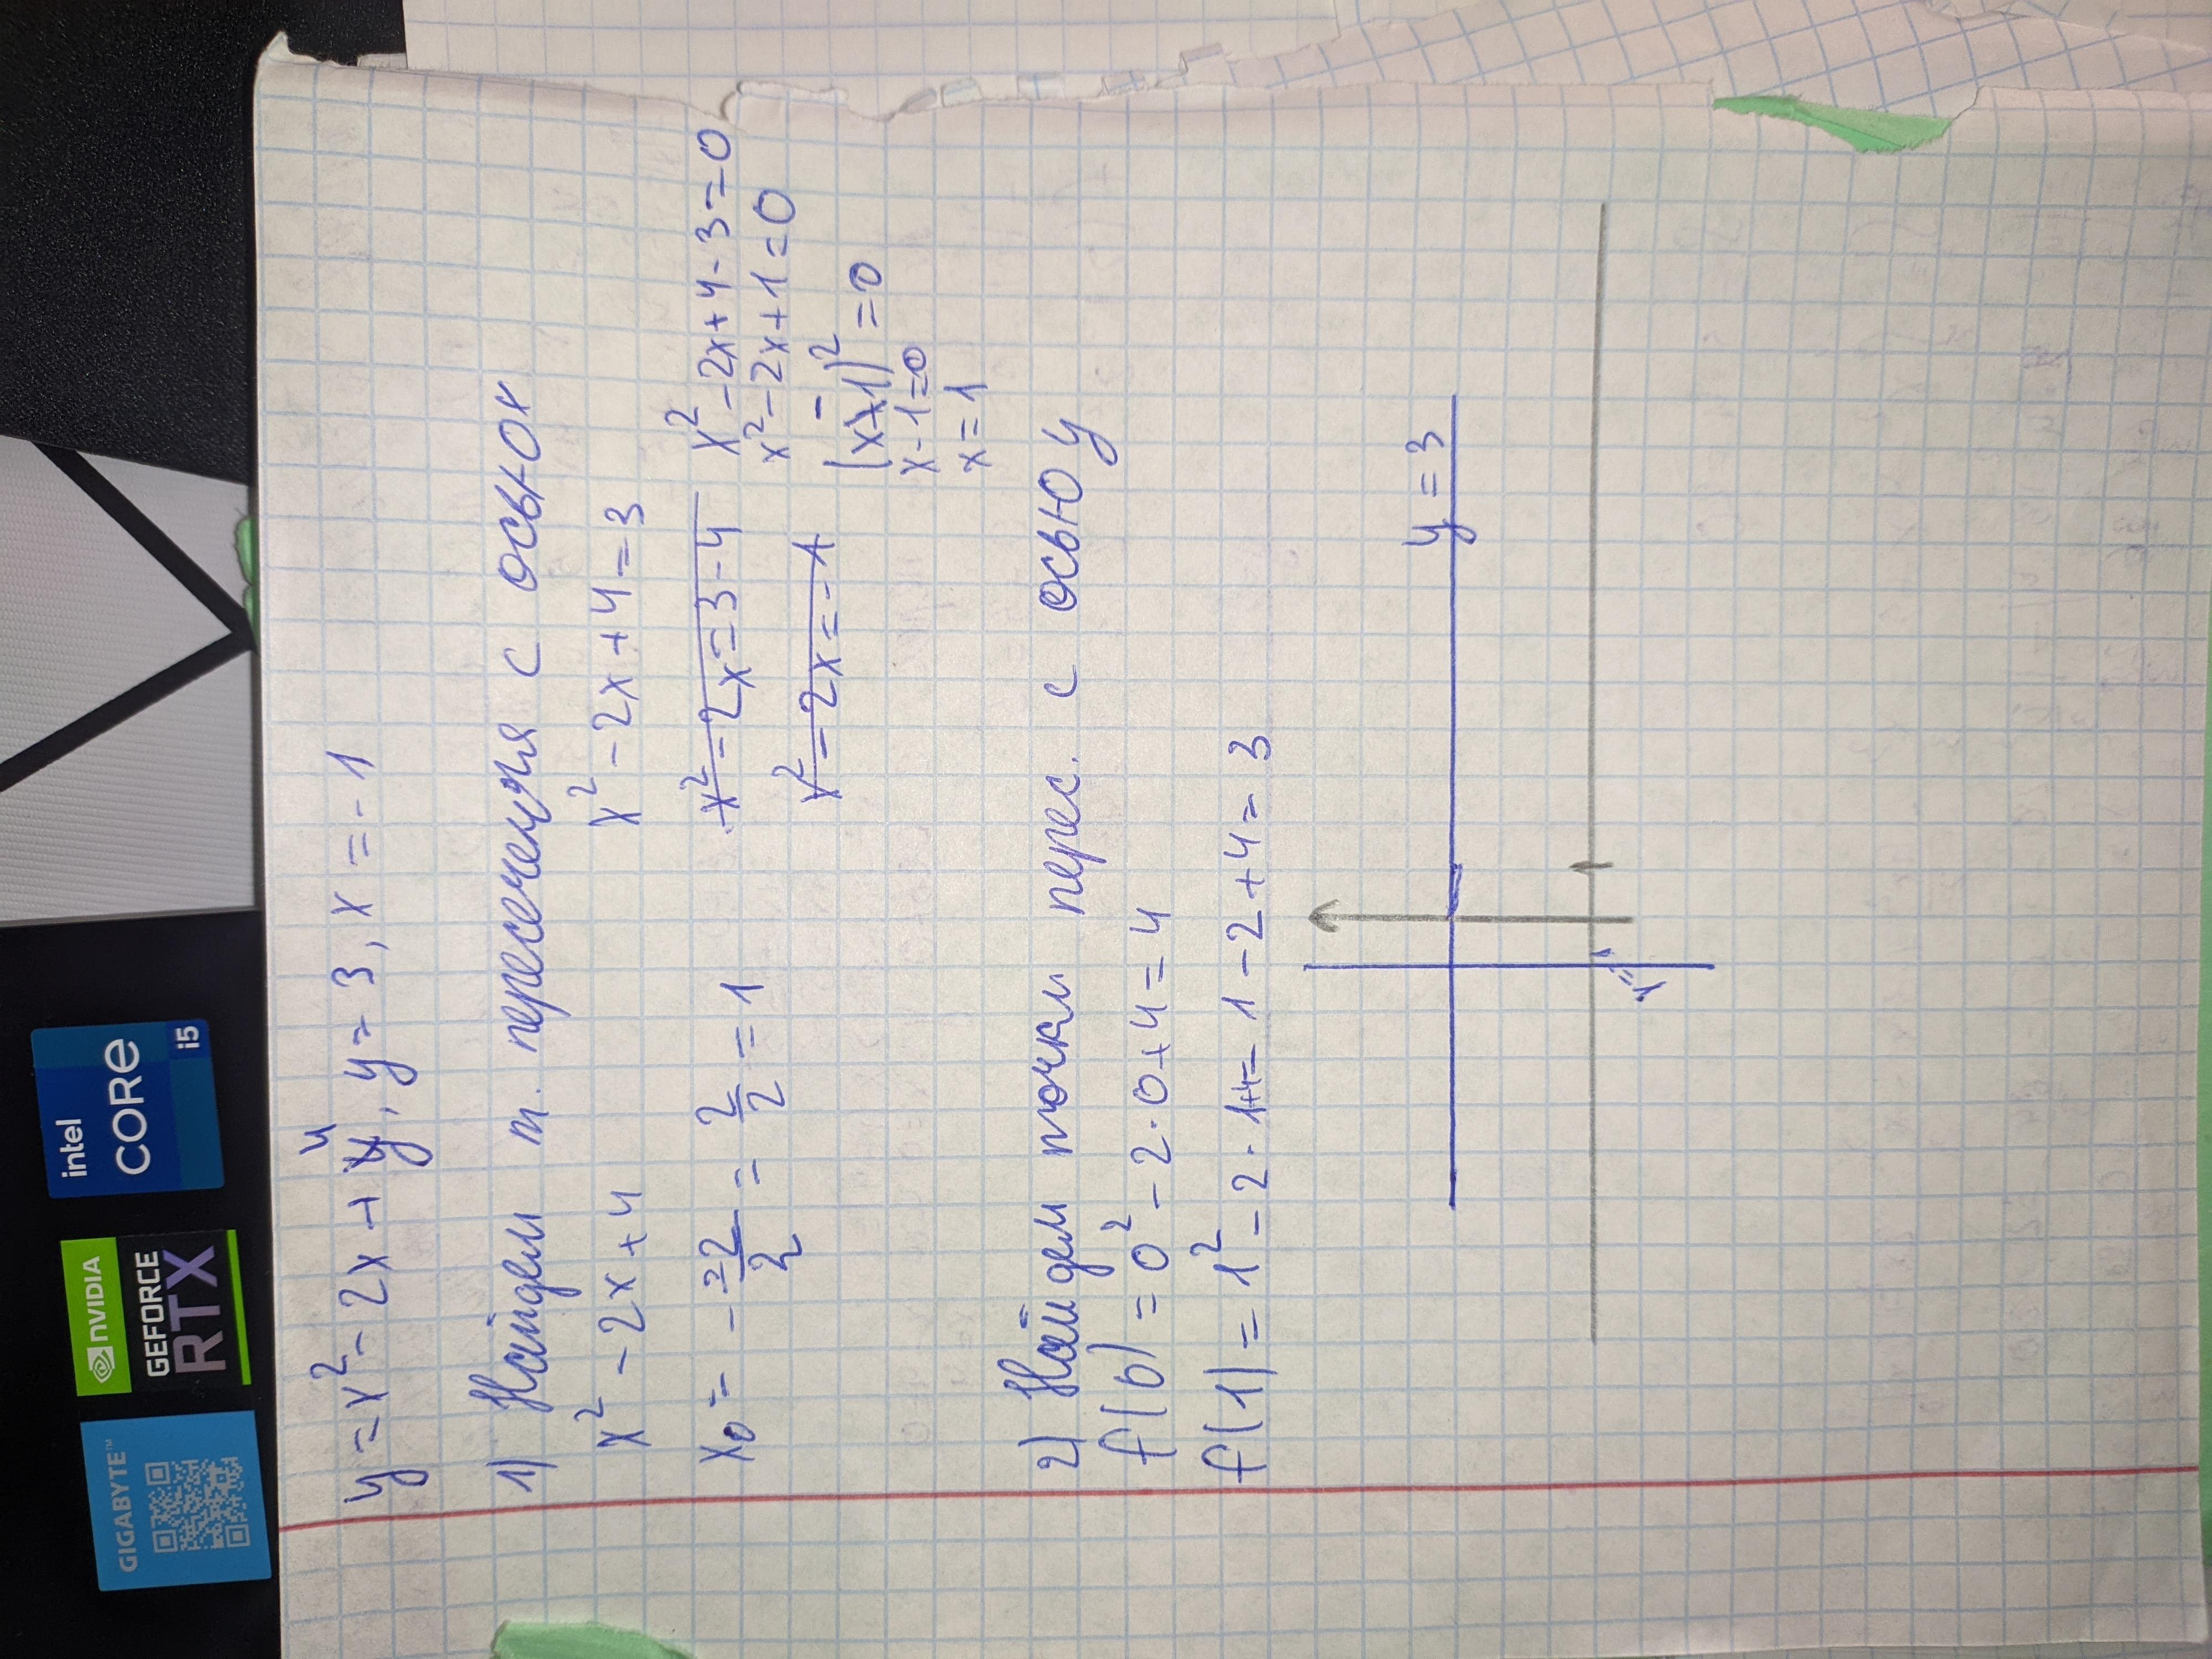 GIGABYTE™
NVIDIA
GEFORCE
RTX
intel
CORE
i5
y = x² - 2x + 4, y = 3, x = -1
1) Найдем т. пересечения с осью OX
x² - 2x + 4
x² - 2x + 4 = 3
x₀ = - -2/2 = - 2/2 = 1
x² - 2x = 3 - 4
x² - 2x + 4 - 3 = 0
x² - 2x = -1
x² - 2x + 1 = 0
(x - 1)² = 0
x - 1 = 0
x = 1
2) Найдем точки перес. с осью y
f(0) = 0² - 2 · 0 + 4 = 4
f(1) = 1² - 2 · 1 + 4 = 1 - 2 + 4 = 3
y = 3